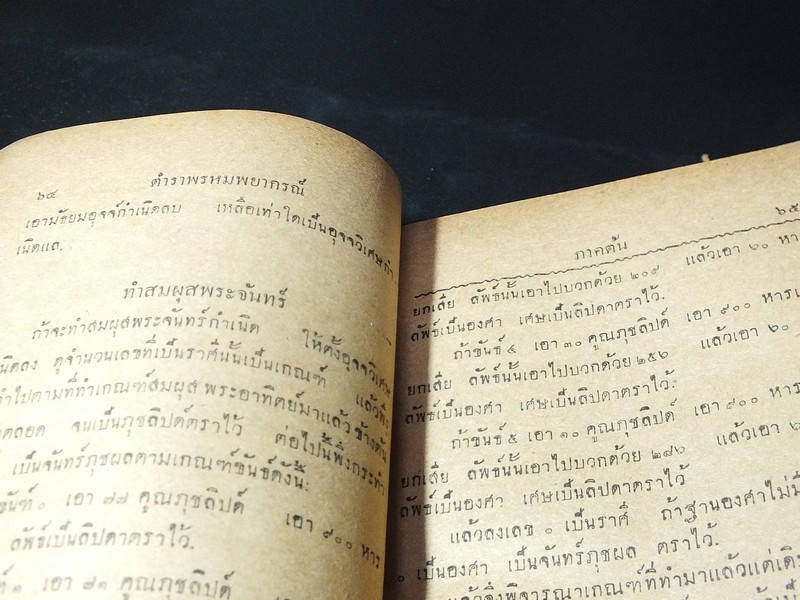 ๖๔ ตำราพรหมพยากรณ์
เอามัธยมอุจจ์กำเนิดลบ เหลือเท่าใดเป็นอุจจวิเศษกำ
เนิดแล.
ทำสมผุสพระจันทร์
ถ้าจะทำสมผุสพระจันทร์กำเนิด ให้ตั้งอุจจวิเศษ
ลง ดูจำนวนเลขที่เป็นราศีนั้นเป็นเกณฑ์ แล้วจึง
ทำไปตามที่ทำเกณฑ์สมผุสพระอาทิตย์มาแล้วข้างต้น
ตลอด จนเป็นภุชลิปต์ตราไว้ ต่อไปนี้พึงกระทำ
เป็นจันทร์ภุชผลตามเกณฑ์ขันธ์ดังนี้:
๐ เอา ๗๗ คูณภุชลิปต์ เอา ๙๐๐ หาร
ลัพธ์เป็นลิปดาตราไว้.
๑ เอา ๗๑ คูณภุชลิปต์
ภาคต้น ๖๕
ยกเสีย ลัพธ์นั้นเอาไปบวกด้วย ๒๐๙ แล้วเอา ๖๐ หา
ลัพธ์เป็นองศา เศษเป็นลิปดาตราไว้.
ถ้าขันธ์ ๔ เอา ๓๐ คูณภุชลิปต์ เอา ๙๐๐ หาร
ยกเสีย ลัพธ์นั้นเอาไปบวกด้วย ๒๕๖ แล้วเอา ๖๐
ลัพธ์เป็นองศา เศษเป็นลิปดาตราไว้.
ถ้าขันธ์ ๕ เอา ๑๐ คูณภุชลิปต์ เอา ๙๐๐ หาร
ยกเสีย ลัพธ์นั้นเอาไปบวกด้วย ๒๘๖ แล้วเอา
ลัพธ์เป็นองศา เศษเป็นลิปดาตราไว้
แล้วลงเลข ๐ เป็นราศี ถ้าฐานองศาไม่มี
๐ เป็นองศา เป็นจันทร์ภุชผล ตราไว้.
แล้วจึงพิจารณาเกณฑ์ที่ทำมาแล้วแต่เดิม